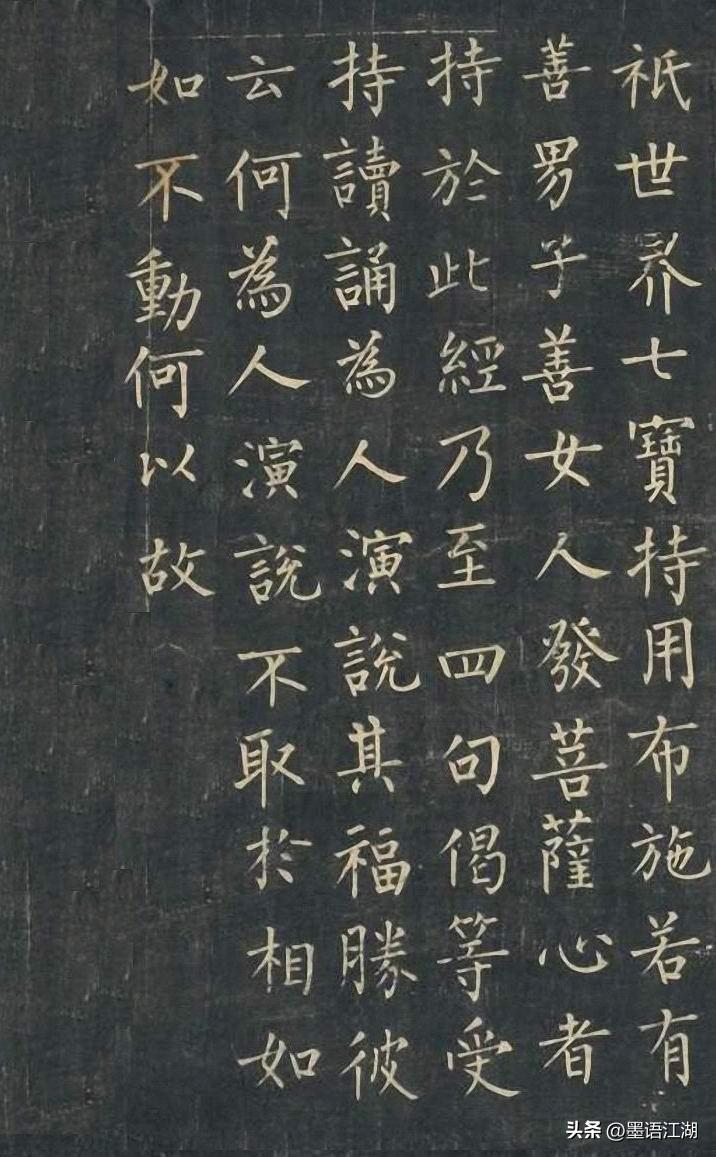 祇世界七寶持用布施若有
善男子善女人發菩薩心者
持於此經乃至四句偈等受
持讀誦為人演說其福勝彼
云何為人演說不取於相如
如不動何以故
头条 @墨语江湖